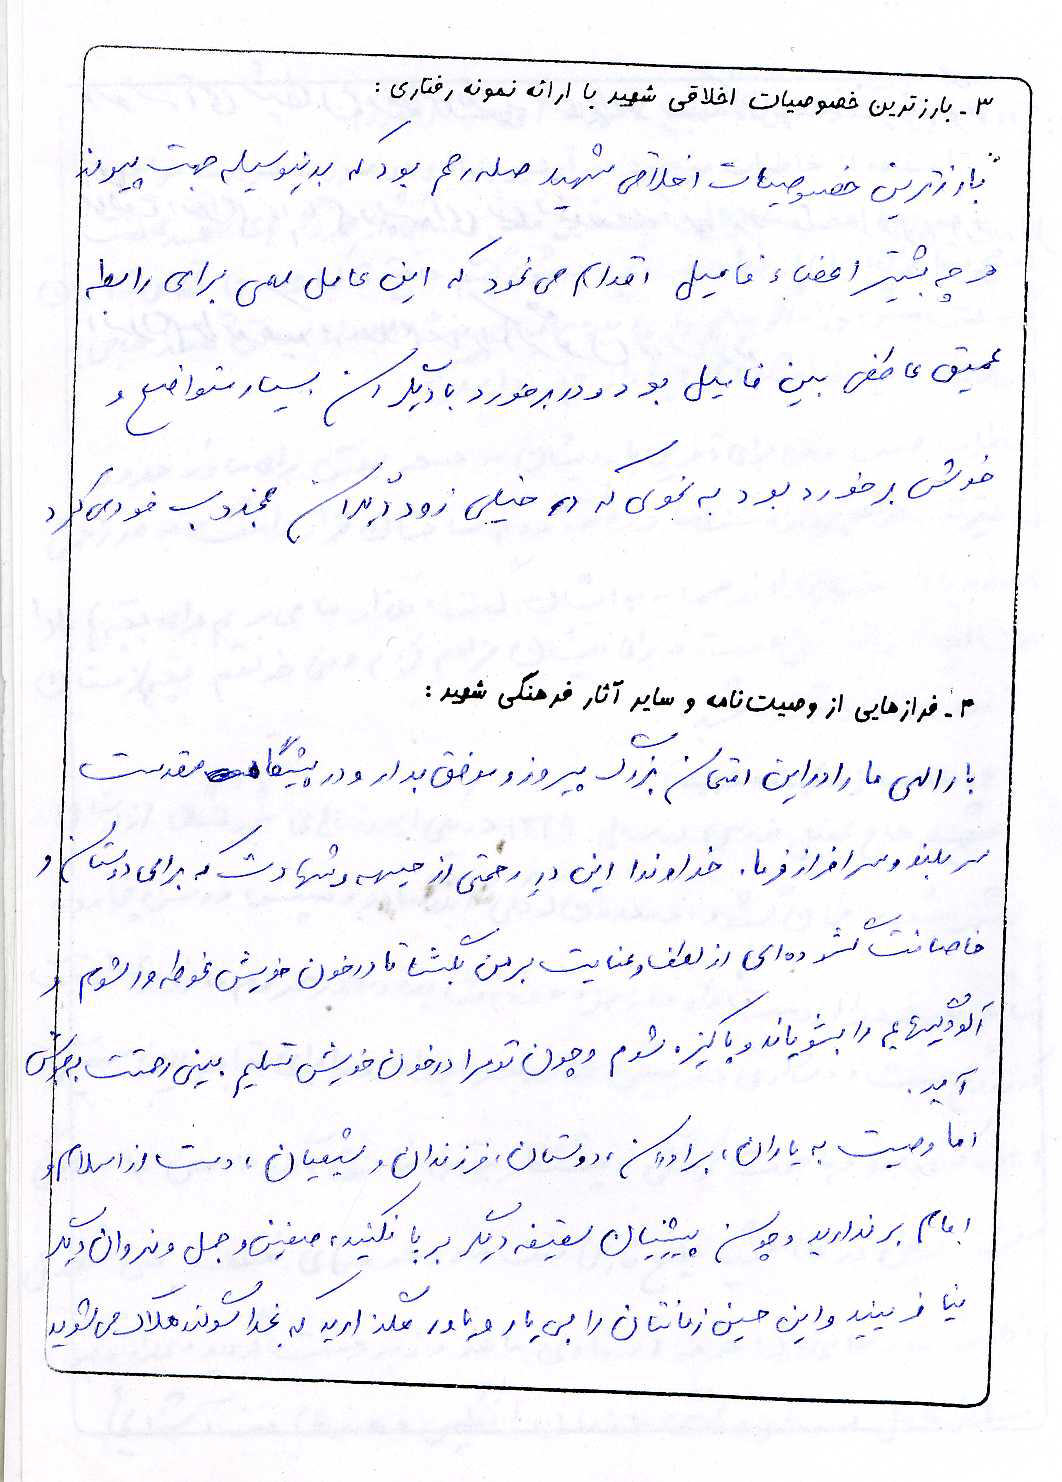 ۳- بارزترین خصوصیات اخلاقی شهید با ارائه نمونه رفتاری :
بارزترین خصوصیات اخلاقی شهید صله رحم بود که بدینوسیله جهت پیوند
هر چه بیشتر اعضاء فامیل اقدام می نمود که این عامل مهمی برای رابطه
عمیق عاطفی بین فامیل بود و در برخورد با دیگران بسیار متواضع و
خوش برخورد بود به نحوی که خیلی زود دیگران مجذوب خود می کرد
۴- فرازهایی از وصیت نامه و سایر آثار فرهنگی شهید :
بار الهی ما را در این امتحان بزرگ پیروز و موفق بدار و در پیشگاه مقدست
سربلند و سرافراز فرما. خداوندا این در رحمتی از جبهه و شهادت که برای دوستان و
خاصانت گشوده ای از لطف و عنایت بر من بگشا تا در خون خویش غوطه ور شوم و
آلودگیهایم را بشویاند و پاکیزه شوم و چون تو مرا در خون خویش تسلیم بینی رحمتت به جوش
آید.
اما وصیت به یاران، برادران، دوستان، فرزندان و شیعیان، دست از اسلام و
امام برندارید و چون پیشینیان سقیفه دیگر بر پا نکنید، صفین و جمل و نهروان دیگر
نیافرینید و این حسین زمانتان را بی یار و یاور مگذارید که بخدا سوگند هلاک می شوید